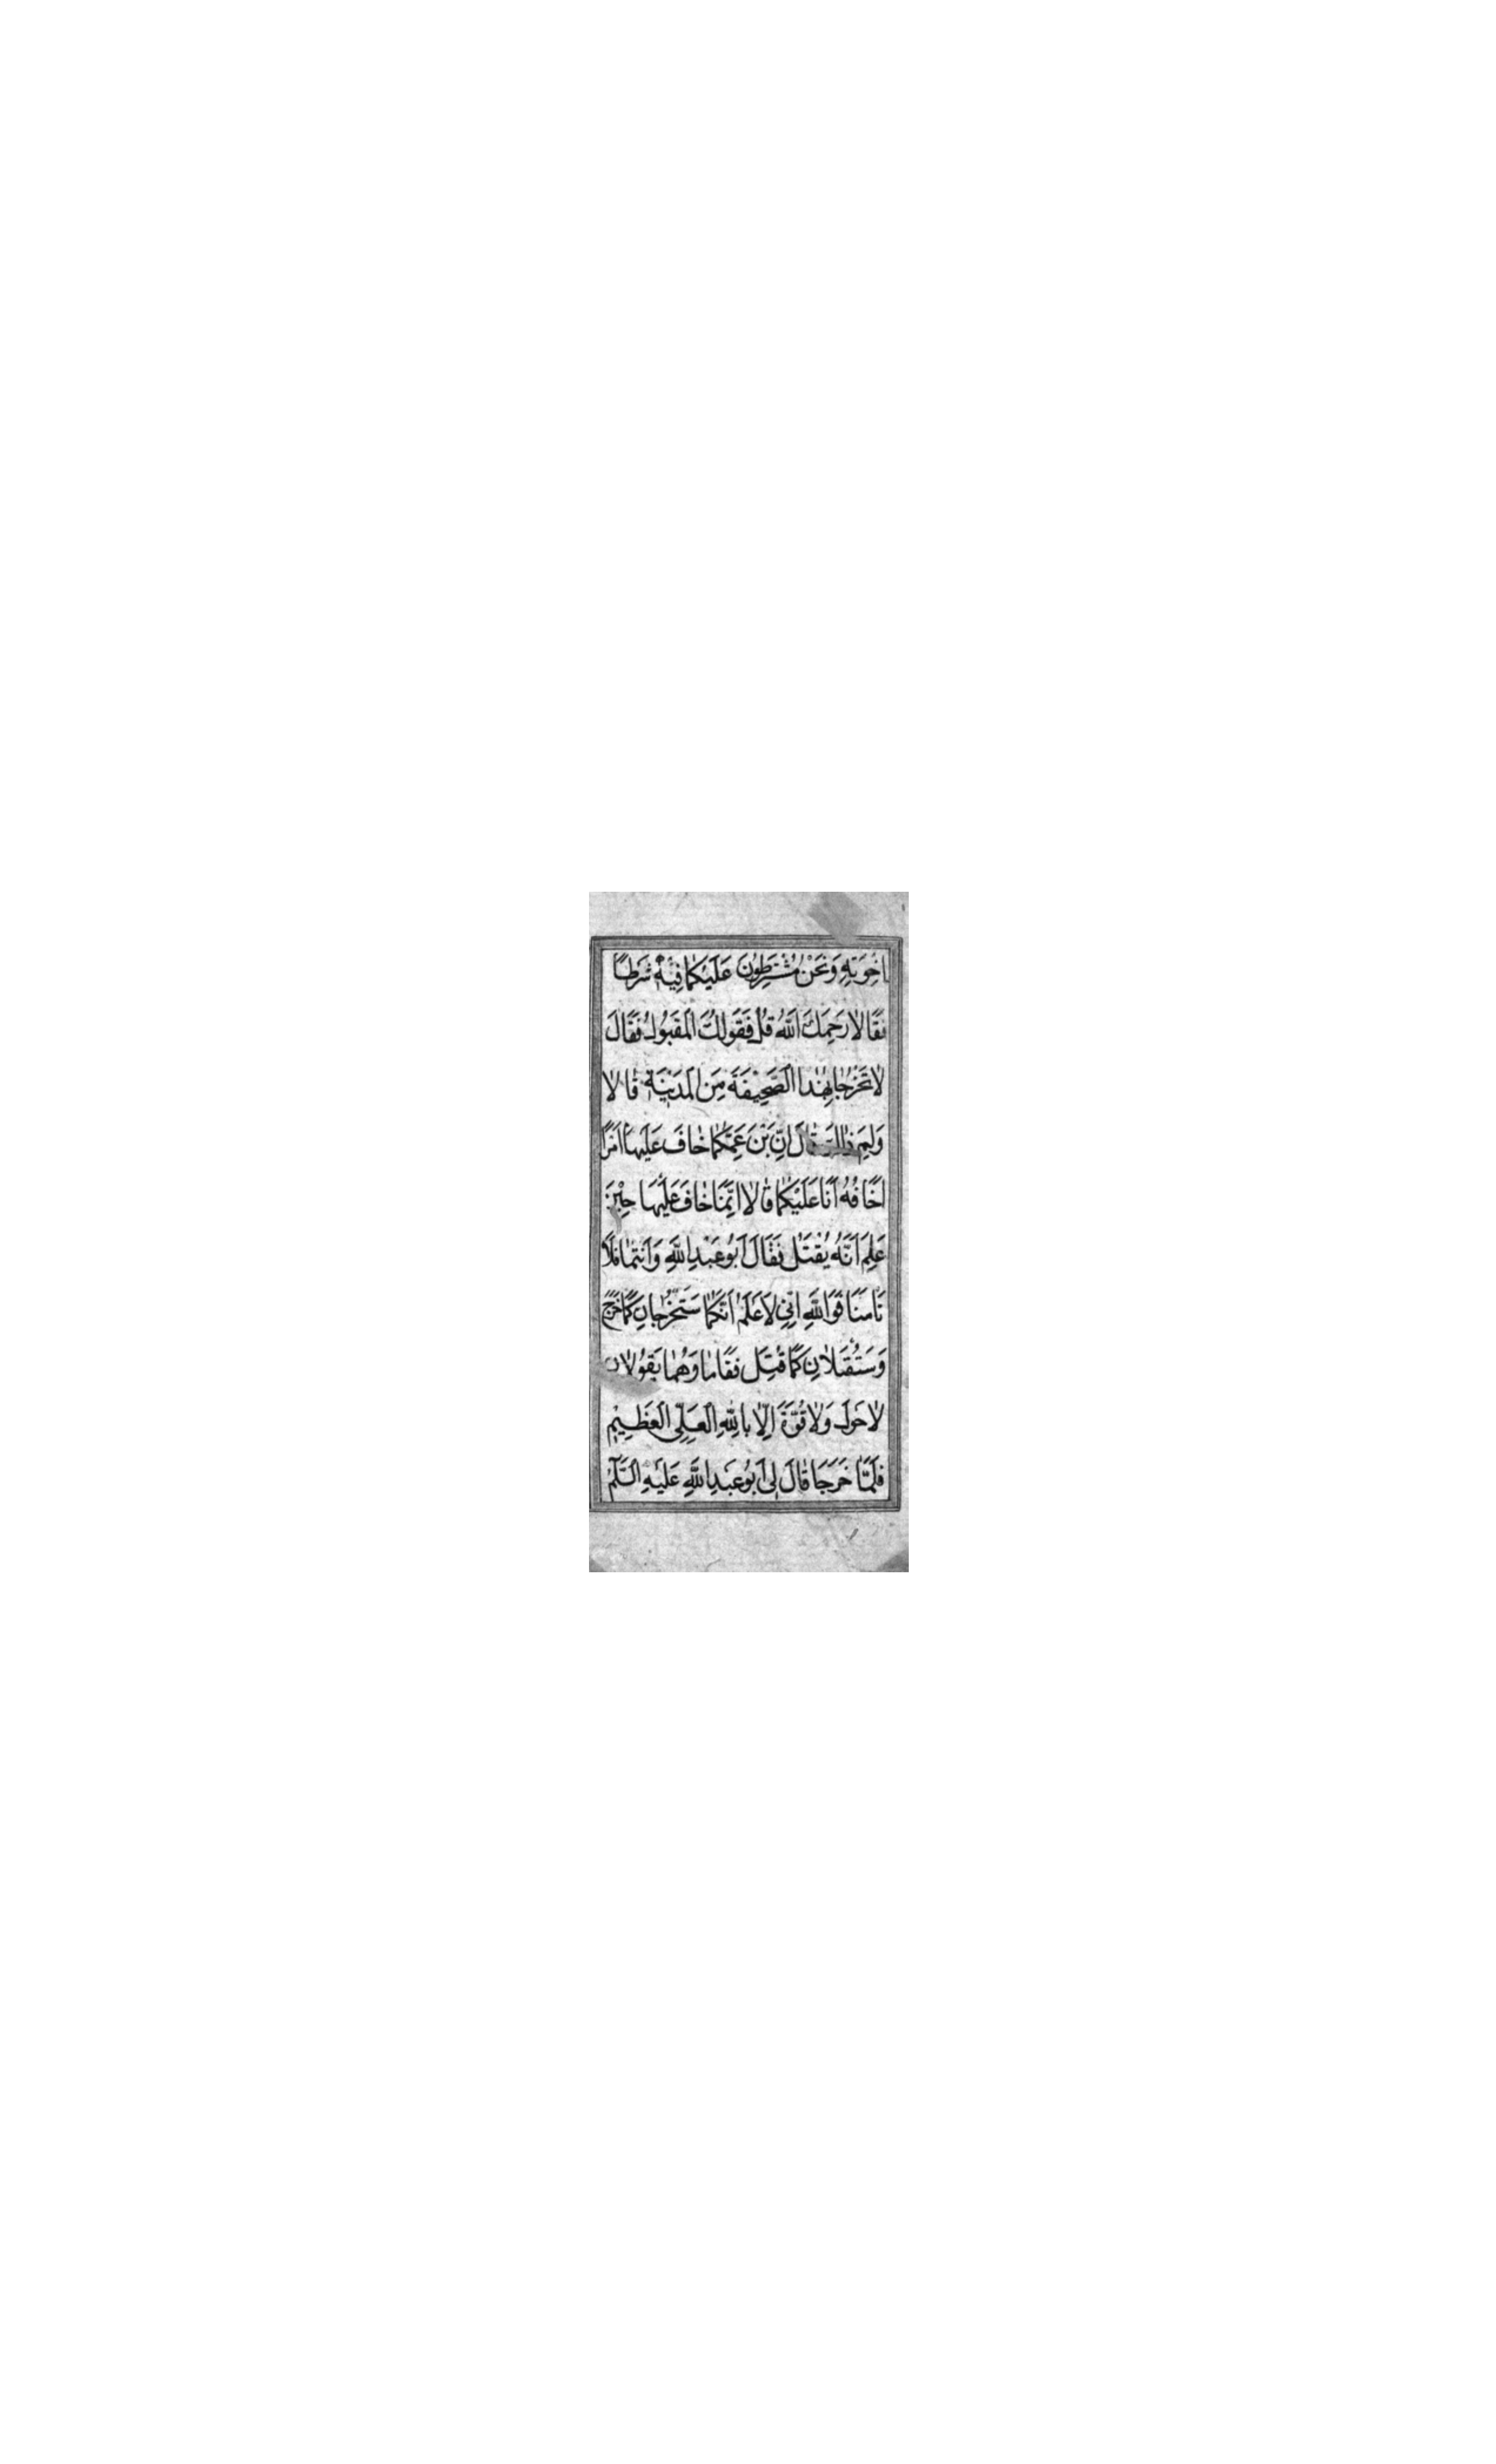 اِخْوَتِهِ وَنَحْنُ مُشْتَرِطُونَ عَلَيْكُمَا فِيْهِ شَرْطًا
فَقَالَا رَحِمَكَ اللّٰهُ قُلْ فَقَوْلُكَ الْمَقْبُولُ فَقَالَ
لَا تَخْرُجَا بِهٰذَا الصَّحِيْفَةِ مِنَ الْمَدِيْنَةِ قَالَا
وَلِمَ ذٰلِكَ قَالَ اِنَّ بْنَ عَمِّكُمَا خَافَ عَلَيْهَا اَمْرًا
اَخَافُهُ اَنَا عَلَيْكُمَا قَالَا اِنَّمَا خَافَ عَلَيْهَا حِيْنَ
عَلِمَ اَنَّهُ يُقْتَلُ فَقَالَ اَبُو عَبْدِ اللّٰهِ وَاَنْتُمَا فَلَا
تَاْمَنَا فَوَاللّٰهِ اِنِّي لَاَعْلَمُ اَنَّكُمَا سَتَخْرُجَانِ كَمَا خَرَجَ
وَسَتُقْتَلَانِ كَمَا قُتِلَ فَقَامَا وَهُمَا يَقُولَانِ
لَا حَوْلَ وَلَا قُوَّةَ اِلَّا بِاللّٰهِ الْعَلِيِّ الْعَظِيْمِ
فَلَمَّا خَرَجَا قَالَ لِي اَبُو عَبْدِ اللّٰهِ عَلَيْهِ السَّلَمُ